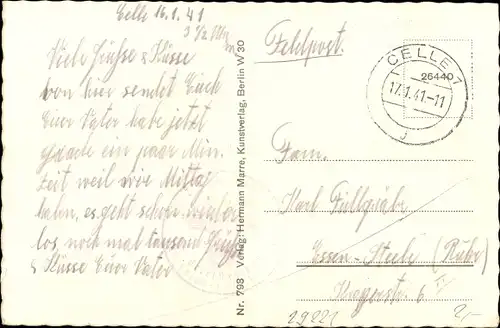 Celle 16.1.41
Viele Grüsse & Küsse
von hier sendet Euch
Euer Vater habe jetzt
gerade ein paar Min.
Zeit weil wir Mittag
haben, es geht schon wieder
los, noch mal tausend Grüsse
& Küsse Euer Vater
Nr. 798 Verlag: Hermann Marre, Kunstverlag, Berlin W 30
Feldpost.
CELLE 1
17.1.41.-11
26440
Fam.
Karl Füllgräbe
Essen-Steele (Ruhr)
6 II
29221
2,-